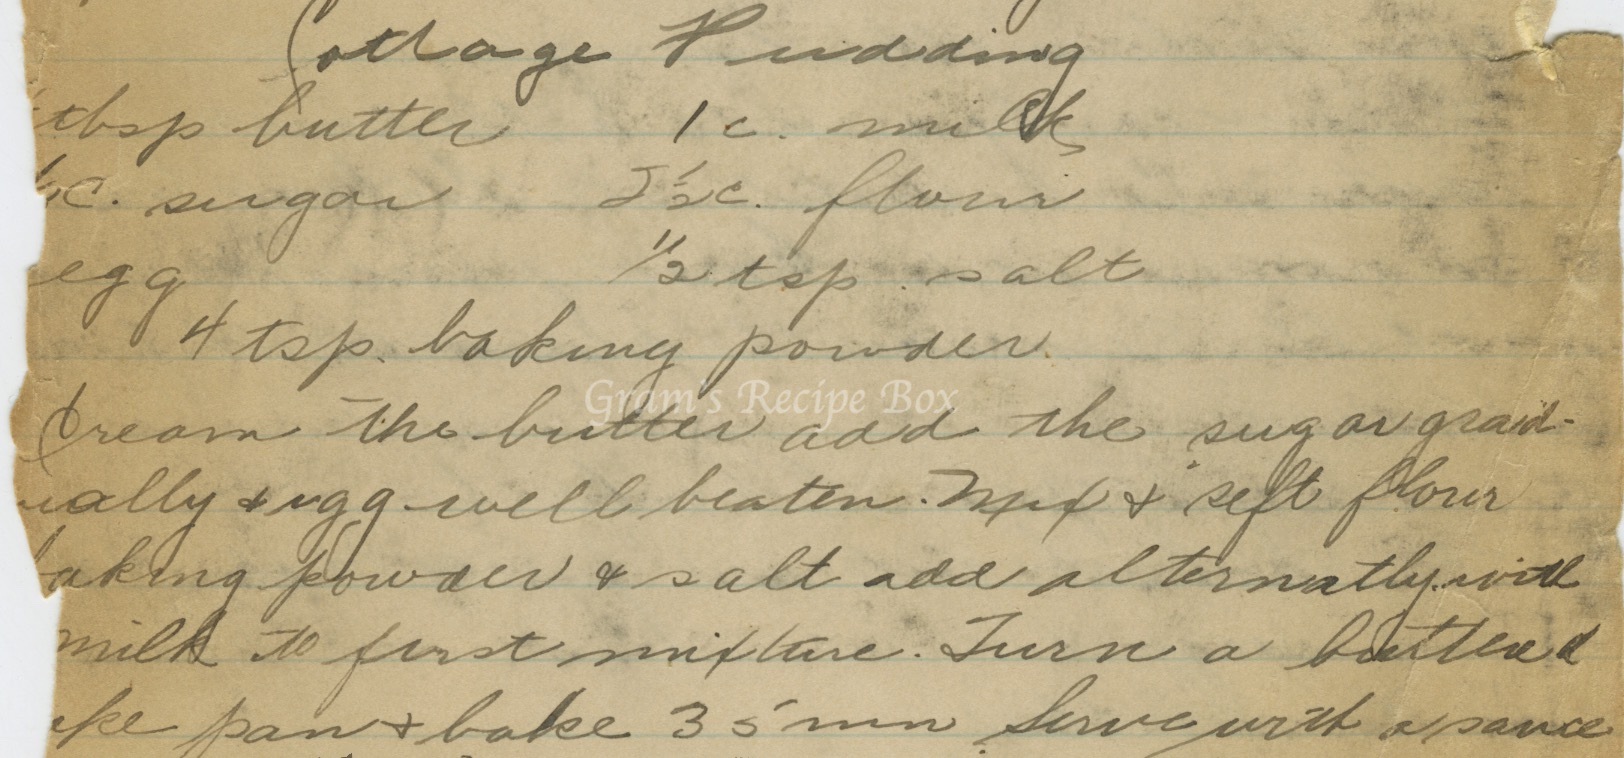 Cottage Pudding
tbsp butter 1 c. milk
c. sugar 2 1/2 c. flour
egg 1/2 tsp. salt
4 tsp. baking powder
Gram's Recipe Box
Cream the butter add the sugar grad-
ually & egg well beaten. Mix & sift flour
baking powder & salt add alternatly with
milk to first mixture. Turn a buttered
ake pan & bake 35 min. Serve with a sauce